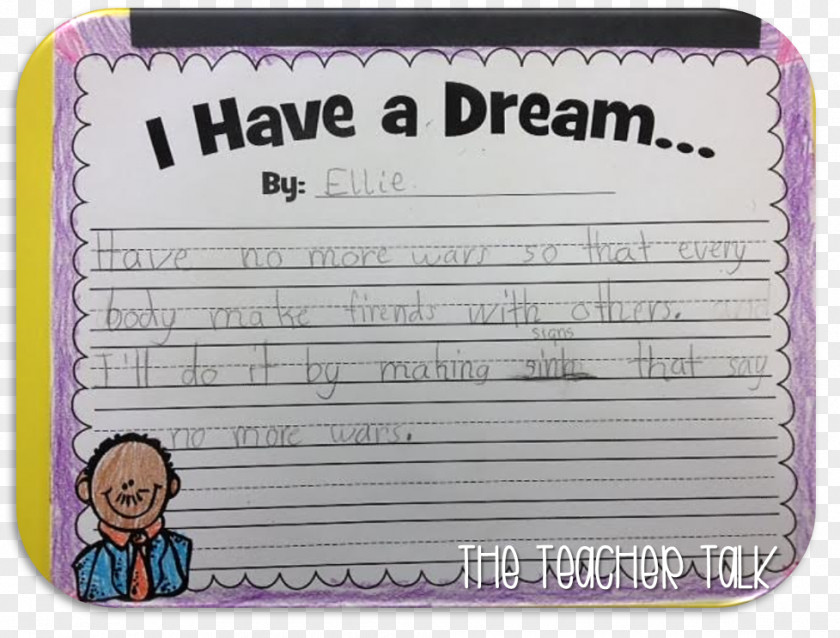 I Have a Dream...
By: Ellie
Have no more wars so that every
body make firends with others. and
signs
I'll do it by making that say
no more wars.
THE TEACHER TALK